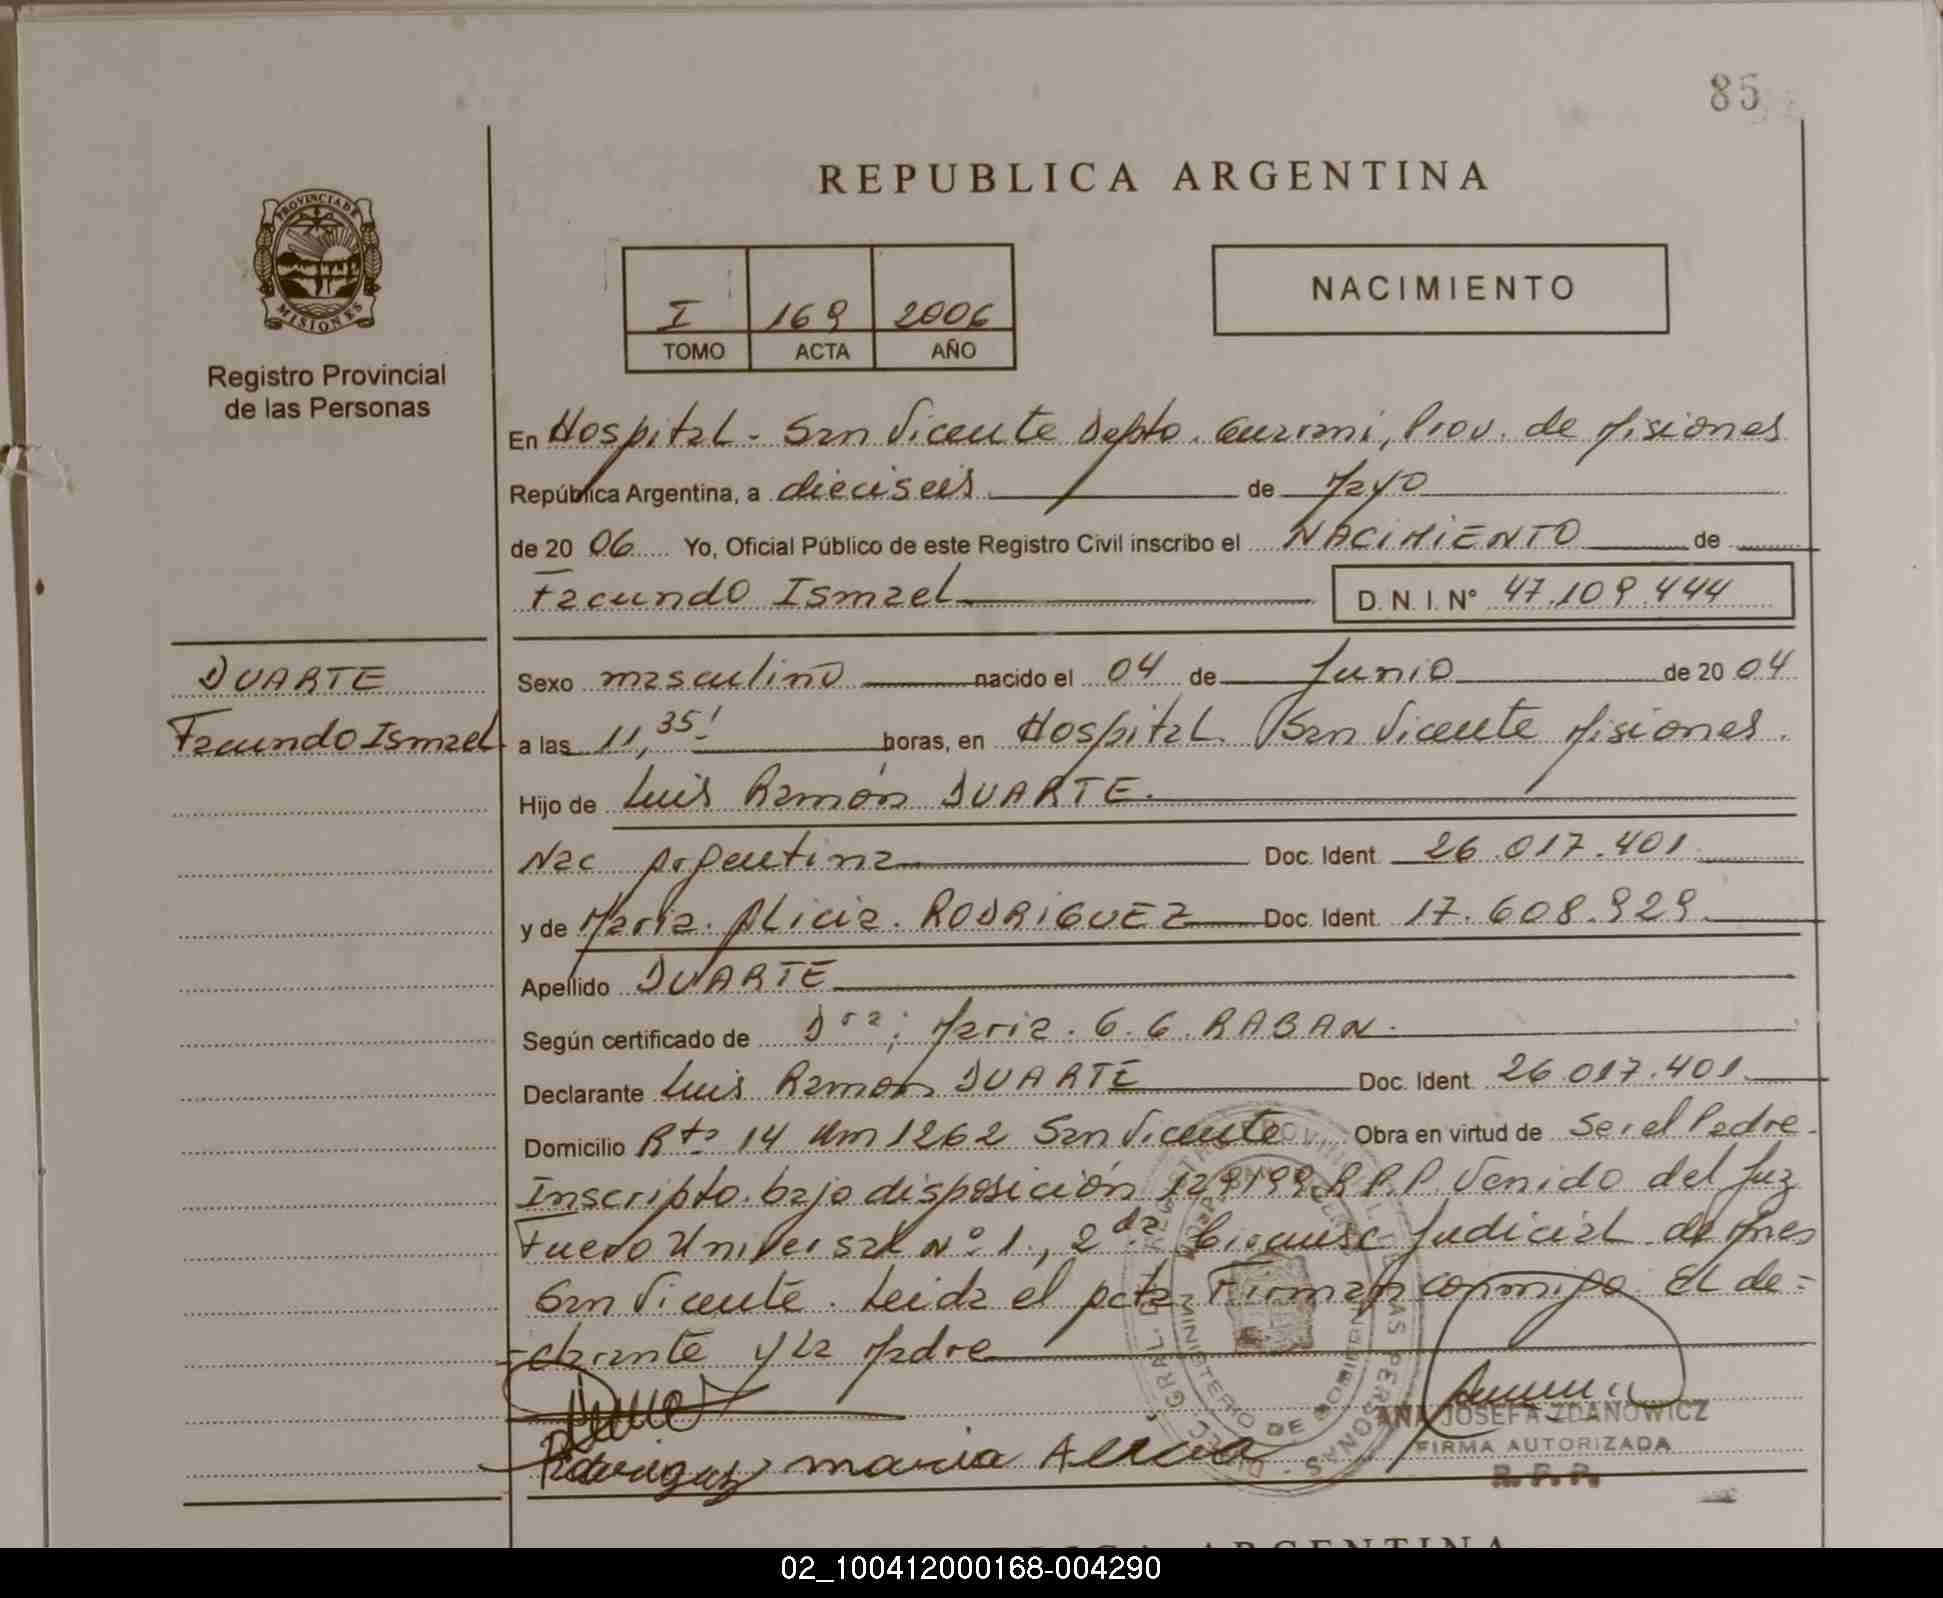 85
REPUBLICA ARGENTINA
PROVINCIA DE
MISIONES
Registro Provincial
de las Personas
I 169 2006
TOMO ACTA AÑO
NACIMIENTO
En Hospital - San Vicente Depto. Guarani, Prov. de Misiones
República Argentina, a dieciseis de Mayo
de 20 06 Yo, Oficial Público de este Registro Civil inscribo el NACIMIENTO de
Facundo Ismael D.N.I. N° 47.109.444
DUARTE
Facundo Ismael
Sexo masculino nacido el 04 de Junio de 20 04
a las 11,35' horas, en Hospital San Vicente Misiones.
Hijo de Luis Ramón DUARTE.
Nac Argentina Doc. Ident. 26.017.401
y de Maria. Alicia. RODRIGUEZ Doc. Ident. 17.608.929
Apellido DUARTE
Según certificado de Dra; Maria. G. G. RABAN.
Declarante Luis Ramon DUARTE Doc. Ident. 26.017.401
Domicilio Rta 14 Km 1262 San Vicente Obra en virtud de Ser el Padre.
Inscripto bajo disposición 129/99 R.P.P. Venido del Juz
Fuero Universal N° 1, 2da Circunsc Judicial de Mnes
San Vicente. Leida el acta Firman conmigo El de=
clarante y La Madre
ANA JOSEFA ZDANOWICZ
FIRMA AUTORIZADA
R.P.P.
Rodriguez maria Alicia
MINISTERIO DE GOBIERNO
REPUBLICA ARGENTINA
02_100412000168-004290